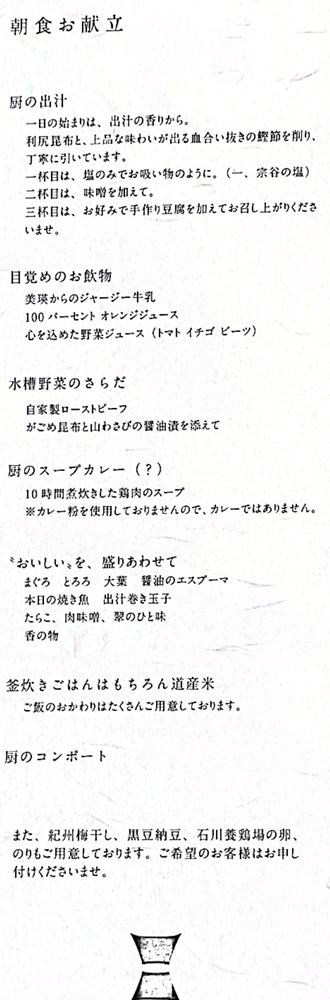 朝食お献立
厨の出汁
一日の始まりは、出汁の香りから。
利尻昆布と、上品な味わいが出る血合い抜きの鰹節を削り、
丁寧に引いています。
一杯目は、塩のみでお吸い物のように。（一、宗谷の塩）
二杯目は、味噌を加えて。
三杯目は、お好みで手作り豆腐を加えてお召し上がりくださ
いませ。
目覚めのお飲物
美瑛からのジャージー牛乳
100 パーセント オレンジジュース
心を込めた野菜ジュース（トマト イチゴ ビーツ）
水槽野菜のさらだ
自家製ローストビーフ
がごめ昆布と山わさびの醤油漬を添えて
厨のスープカレー（？）
10 時間煮炊きした鶏肉のスープ
※カレー粉を使用しておりませんので、カレーではありません。
〝おいしい〟を、盛りあわせて
まぐろ とろろ 大葉 醤油のエスプーマ
本日の焼き魚 出汁巻き玉子
たらこ、肉味噌、翠のひと味
香の物
釜炊きごはんはもちろん道産米
ご飯のおかわりはたくさんご用意しております。
厨のコンポート
また、紀州梅干し、黒豆納豆、石川養鶏場の卵、
のりもご用意しております。ご希望のお客様はお申し
付けくださいませ。